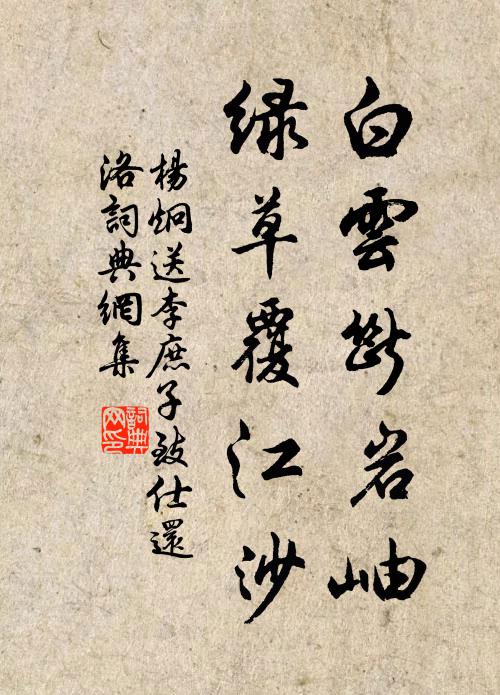 白雲斷岩岫
绿草覆江沙
楊炯送李庶子致仕還
洛詞典網集
詞典网印